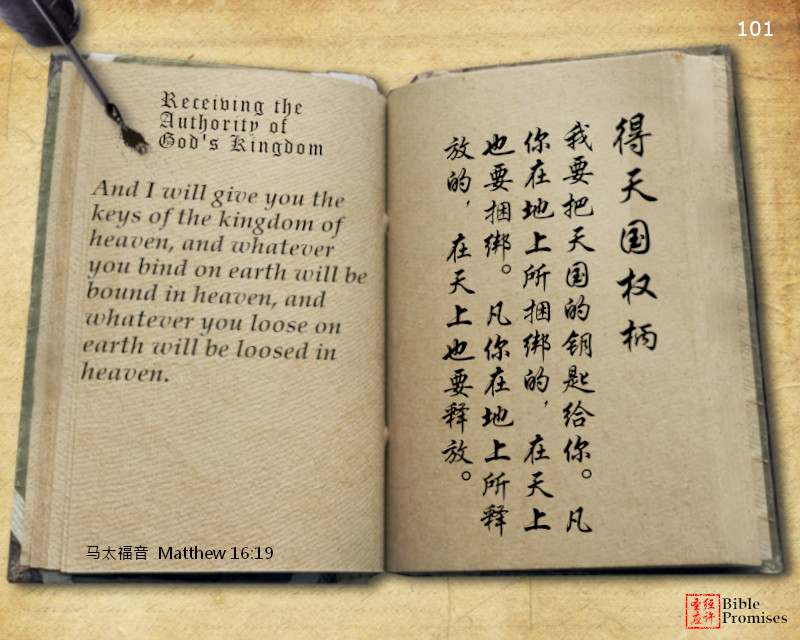 101
Receiving the
Authority of
God's Kingdom
And I will give you the
keys of the kingdom of
heaven, and whatever
you bind on earth will be
bound in heaven, and
whatever you loose on
earth will be loosed in
heaven.
马太福音 Matthew 16:19
得天国权柄
我要把天国的钥匙给你。凡
你在地上所捆绑的，在天上
也要捆绑。凡你在地上所释
放的，在天上也要释放。
圣经
应许
Bible
Promises